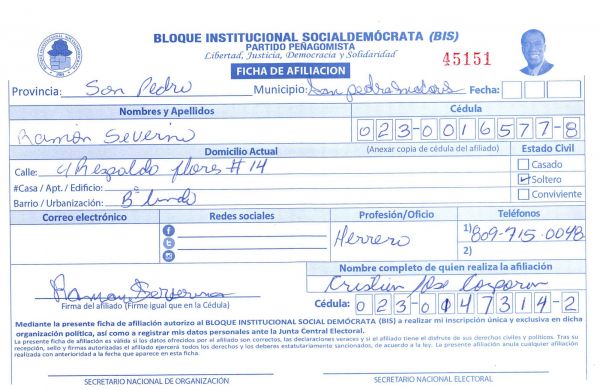 BLOQUE INSTITUCIONAL SOCIALDEMÓCRATA (BIS)
PARTIDO PEÑAGOMISTA
Libertad, Justicia, Democracia y Solidaridad
45151
FICHA DE AFILIACION
Provincia: San Pedro Municipio: San pedro Macoris Fecha:
Nombres y Apellidos Cédula
Ramón Severino 023-0016577-8
Domicilio Actual (Anexar copia de cédula del afiliado) Estado Civil
Calle: Respaldo flores #14 Casado
#Casa / Apt. / Edificio: Soltero
Barrio / Urbanización: Bº Conviviente
Correo electrónico Redes sociales Profesión/Oficio Teléfonos
Herrero 1) 809-715-0048
2)
Nombre completo de quien realiza la afiliación
Ramon Severino Cristian Jose Corporan
Firma del afiliado (Firme igual que en la Cédula) Cédula: 023-0147314-2
Mediante la presente ficha de afiliación autorizo al BLOQUE INSTITUCIONAL SOCIAL DEMÓCRATA (BIS) a realizar mi inscripción única y exclusiva en dicha
organización política, así como a registrar mis datos personales ante la Junta Central Electoral.
La presente ficha de afiliación es válida si los datos ofrecidos por el afiliado son correctos, las declaraciones veraces y si el titular tiene el disfrute de sus derechos civiles y políticos. Tras su
recepción, sello y firmas autorizadas el afiliado ejercerá todos los derechos y los deberes estatutariamente sancionados, de acuerdo a la ley. La presente afiliación anula cualquier afiliación
realizada con anterioridad a la fecha que aparece en esta ficha.
SECRETARIO NACIONAL DE ORGANIZACIÓN SECRETARIO NACIONAL ELECTORAL